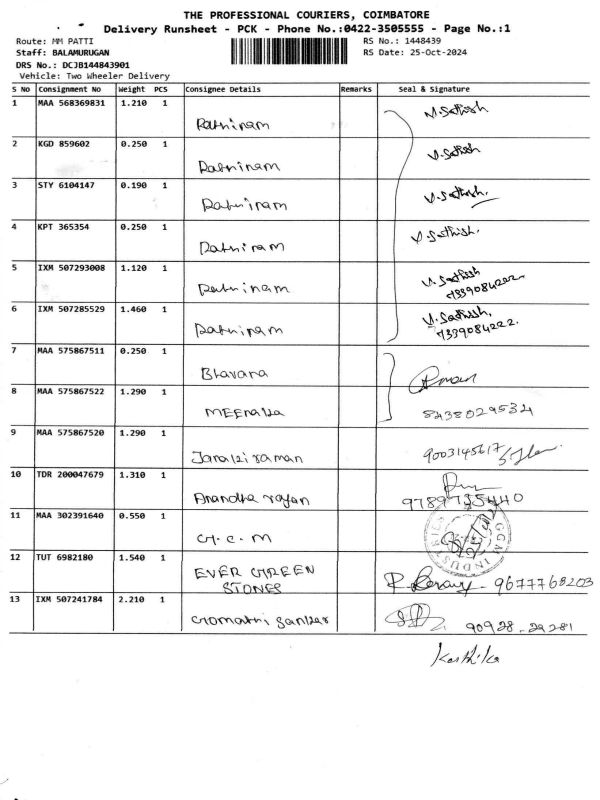 THE PROFESSIONAL COURIERS, COIMBATORE
Delivery Runsheet - PCK - Phone No.:0422-3505555 - Page No.:1
Route: MM PATTI RS No.: 1448439
Staff: BALAMURUGAN RS Date: 25-Oct-2024
DRS No.: DCJB144843901
Vehicle: Two Wheeler Delivery
S No Consignment No Weight PCS Consignee Details Remarks Seal & Signature
1 MAA 568369831 1.210 1 Rathinam V. Sathish
2 KGD 859602 0.250 1 Rathinam V. Sathish
3 STY 6104147 0.190 1 Rathinam V. Sathish.
4 KPT 365354 0.250 1 Rathinam V. Sathish.
5 IXM 507293008 1.120 1 Rathinam V. Sathish
7339084222
6 IXM 507285529 1.460 1 Rathinam V. Sathish,
7339084222.
7 MAA 575867511 0.250 1 Bhavana
8 MAA 575867522 1.290 1 MEENAKA 8438029534
9 MAA 575867520 1.290 1 Janakiraman 9003145617
10 TDR 200047679 1.310 1 Anandha rajan 9789755440
11 MAA 302391640 0.550 1 G.C.M GGM INDUSTRIES
12 TUT 6982180 1.540 1 EVER GREEN
STONES 9677768203
13 IXM 507241784 2.210 1 Gomathi Sankar 90928-29281
Karthika